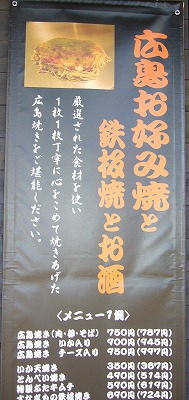 広島お好み焼と
鉄板焼とお酒
厳選された食材を使い
1枚1枚丁寧に心をこめて焼きあげた
広島焼きをご堪能ください。
〈メニュー1例〉
広島焼き(肉・卵・そば) 750円(787円)
広島焼き いか入り 900円(945円)
広島焼き チーズ入り 950円(997円)
いか天焼き 350円(367円)
とんぺい焼き 490円(514円)
特製ぶたキムチ 590円(619円)
すなぎもの鉄板焼き 690円(724円)